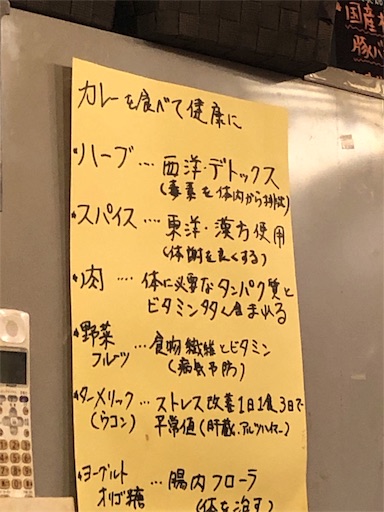 国産
豚バ
カレーを食べて健康に
・ハーブ…西洋・デトックス
(毒素を体内から排出)
・スパイス…東洋・漢方使用
(体謝を良くする)
・肉…体に必要なタンパク質と
ビタミンタタく含まれる
・野菜 フルーツ…食物繊維とビタミン
(病気予防)
・ターメリック…ストレス改善1日1食3日で
(ウコン) 平常値(肝蔵・アルツハイマー)
・ヨーグルト オリゴ糖…腸内フローラ
(体を治す)